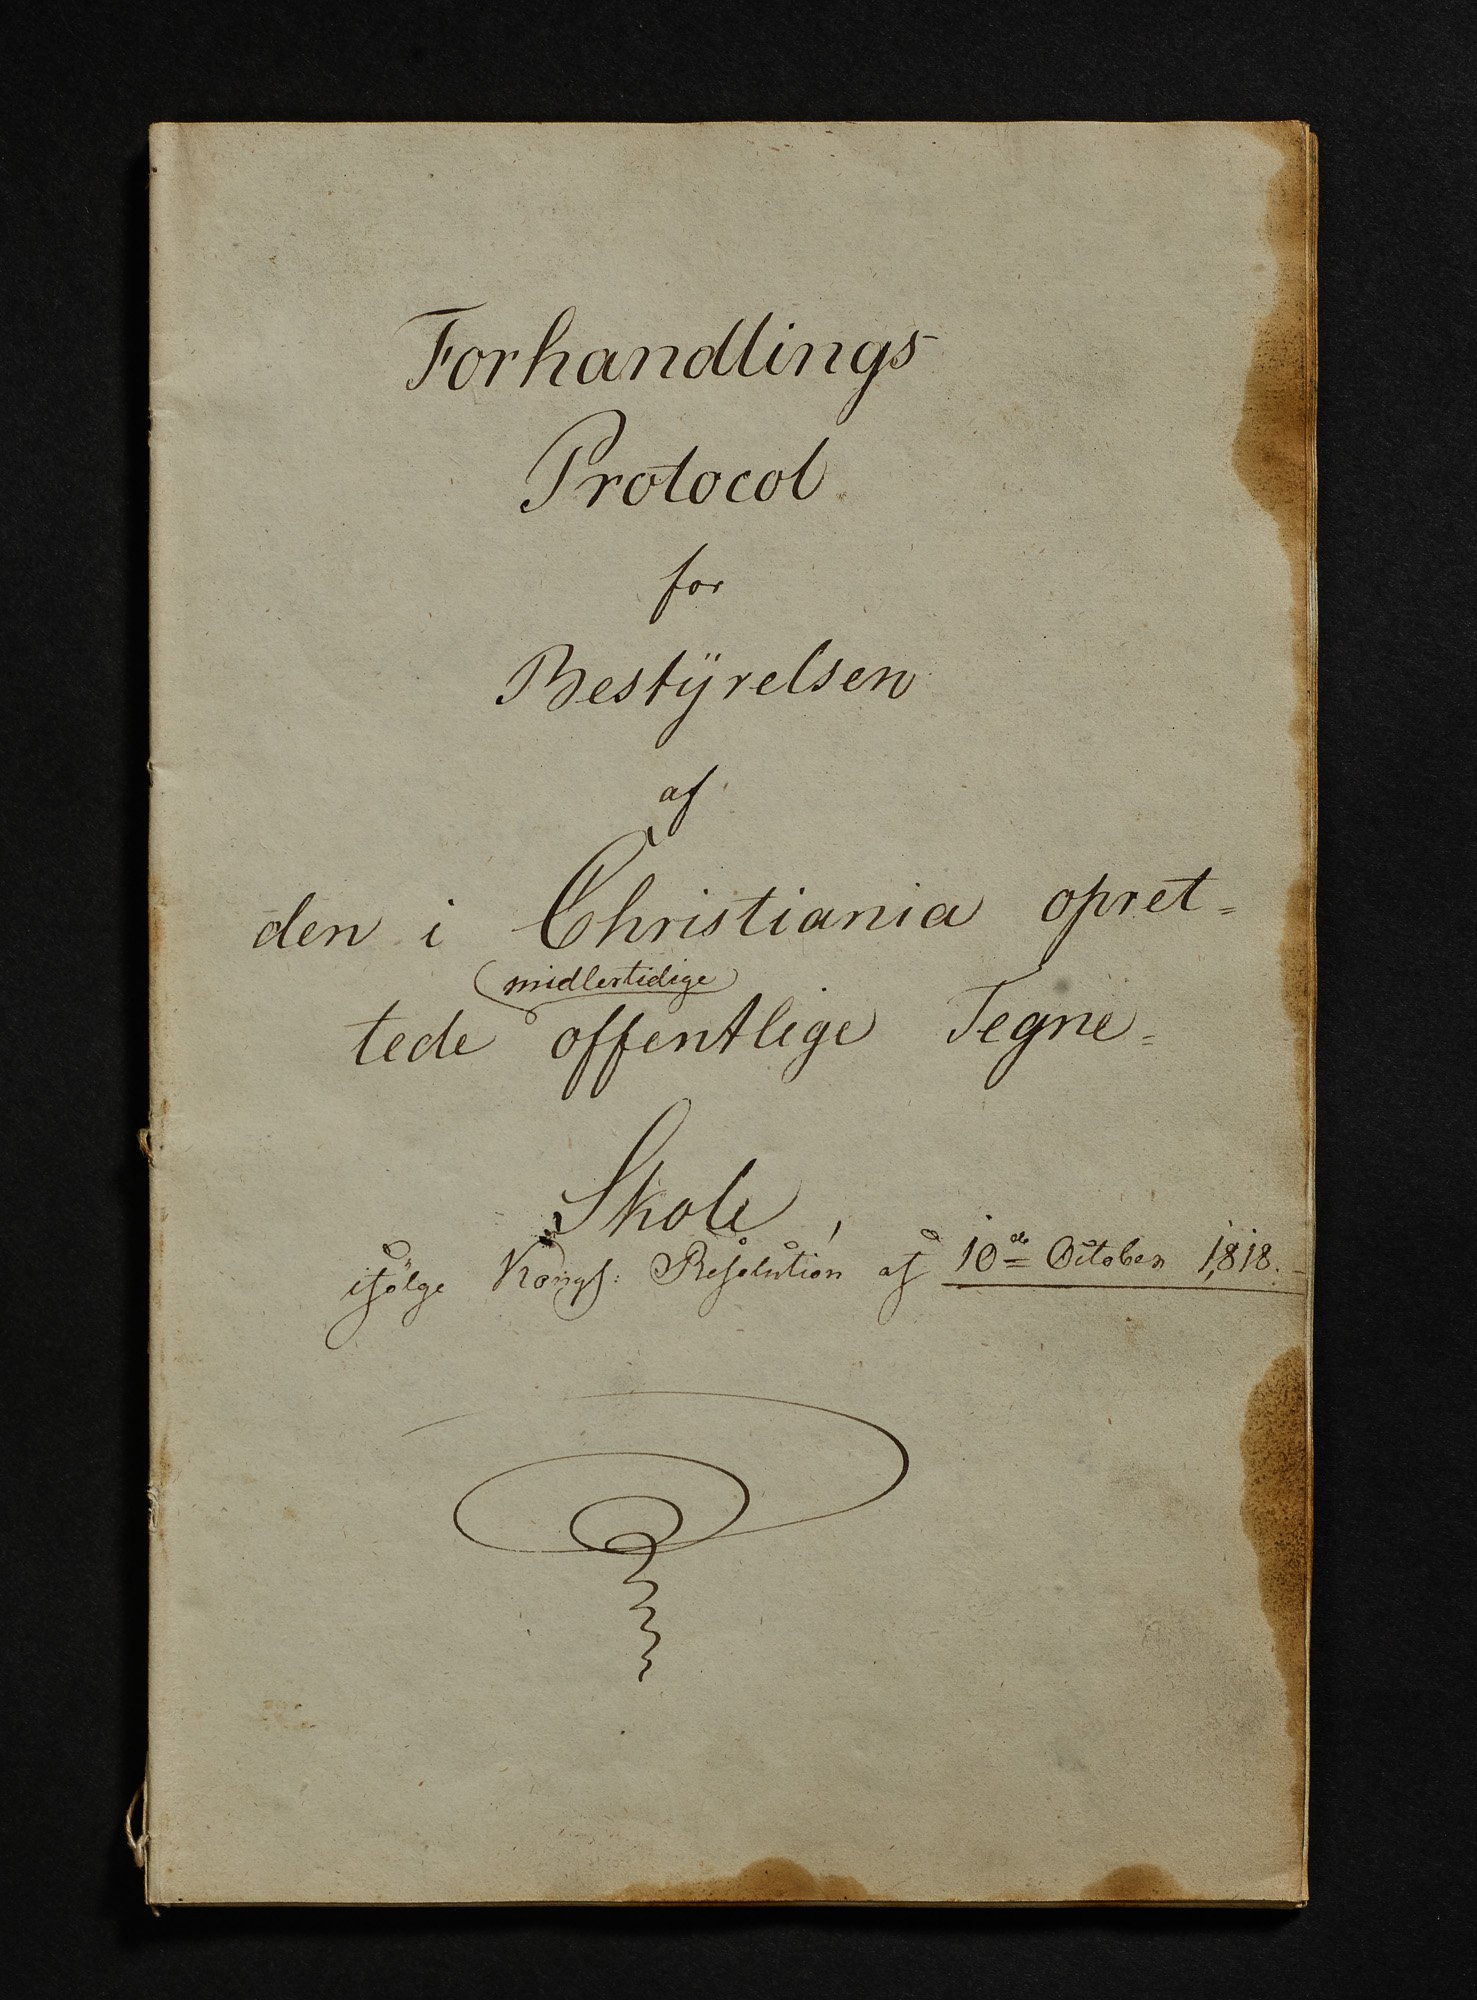 Forhandlings
Protocol
for
Bestÿrelsen
af
den i Christiania opret=
midlertidige
tede offentlige Tegne=
Skole,
ifølge Kongl: Resolution af 10de October 1818.